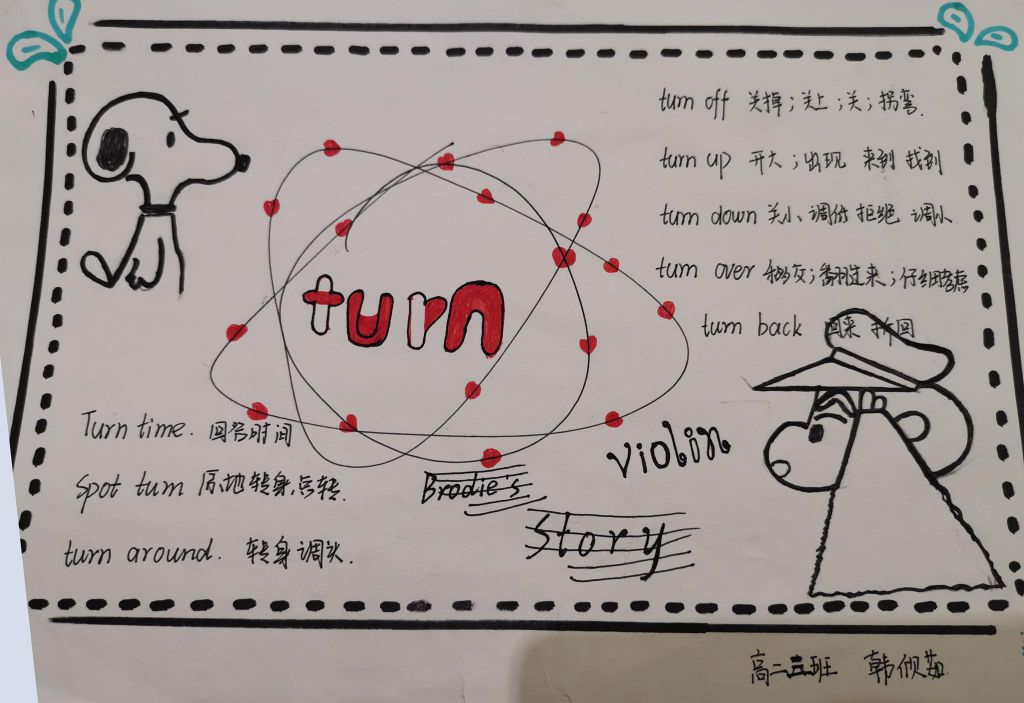 turn off 关掉；关上；关；拐弯.
turn up 开大；出现 来到 找到
turn down 关小、调低 拒绝 调小
turn over 移交；翻过来；仔细考虑
turn back 回来 折回
turn
Turn time. 回答时间
Spot turn 原地转身、点转.
turn around. 转身 调头.
violin
Brodie's
Story
高二三班 韩